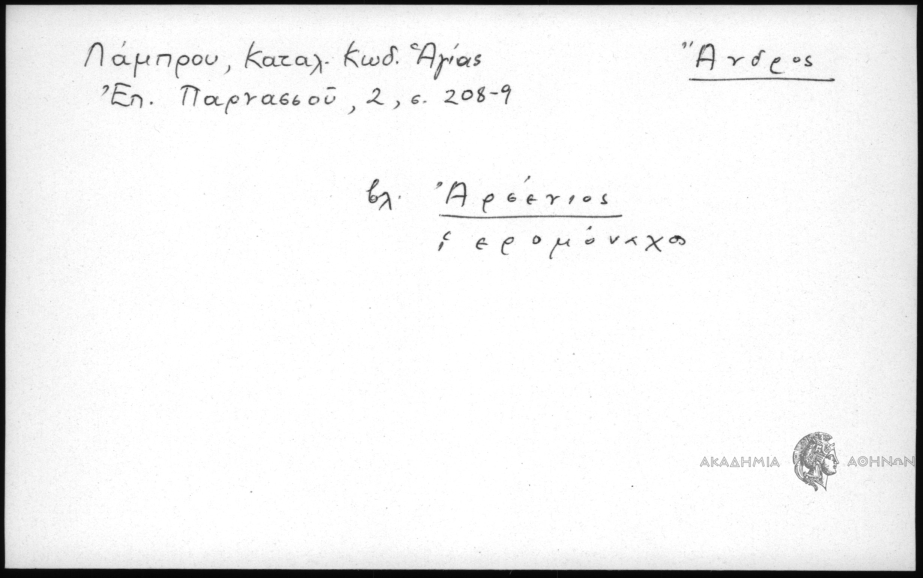 Λάμπρου, Καταλ. Κωδ. Ἁγίας
Ἄνδρος
Ἐπ. Παρνασσοῦ, 2, σ. 208-9
βλ. Ἀρσένιος
ἱερομόναχος
ΑΚΑΔΗΜΙΑ ΑΘΗΝΩΝ